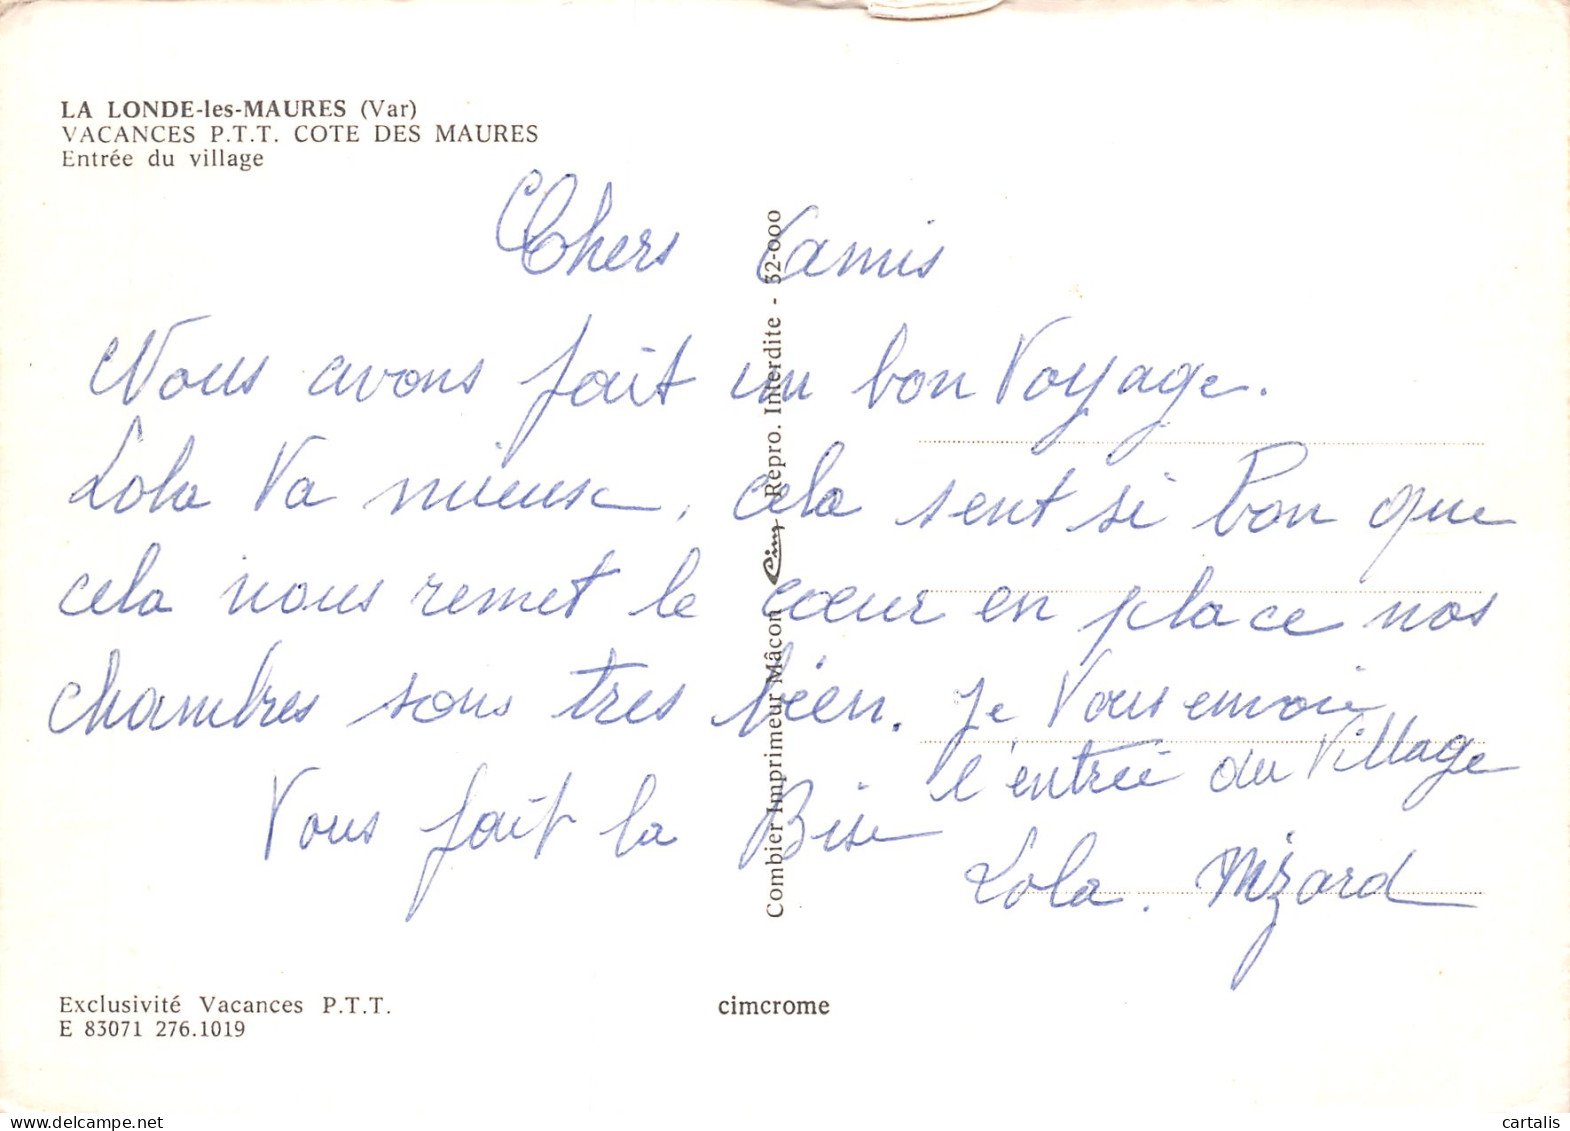 LA LONDE-les-MAURES (Var)
VACANCES P.T.T. COTE DES MAURES
Entrée du village
Chers Camis
Nous avons fait un bon Voyage.
Lola Va mieux, cela sent si Bon que
cela nous remet le cœur en place nos
chambres sons tres béen. Je Vous envoie
l'entrée du Village
Vous fait la Bise
Lola. Mizard
Combier Imprimeur Mâcon Cim Repro. Interdite - 32-000
Exclusivité Vacances P.T.T.
E 83071 276.1019
cimcrome
cartalis